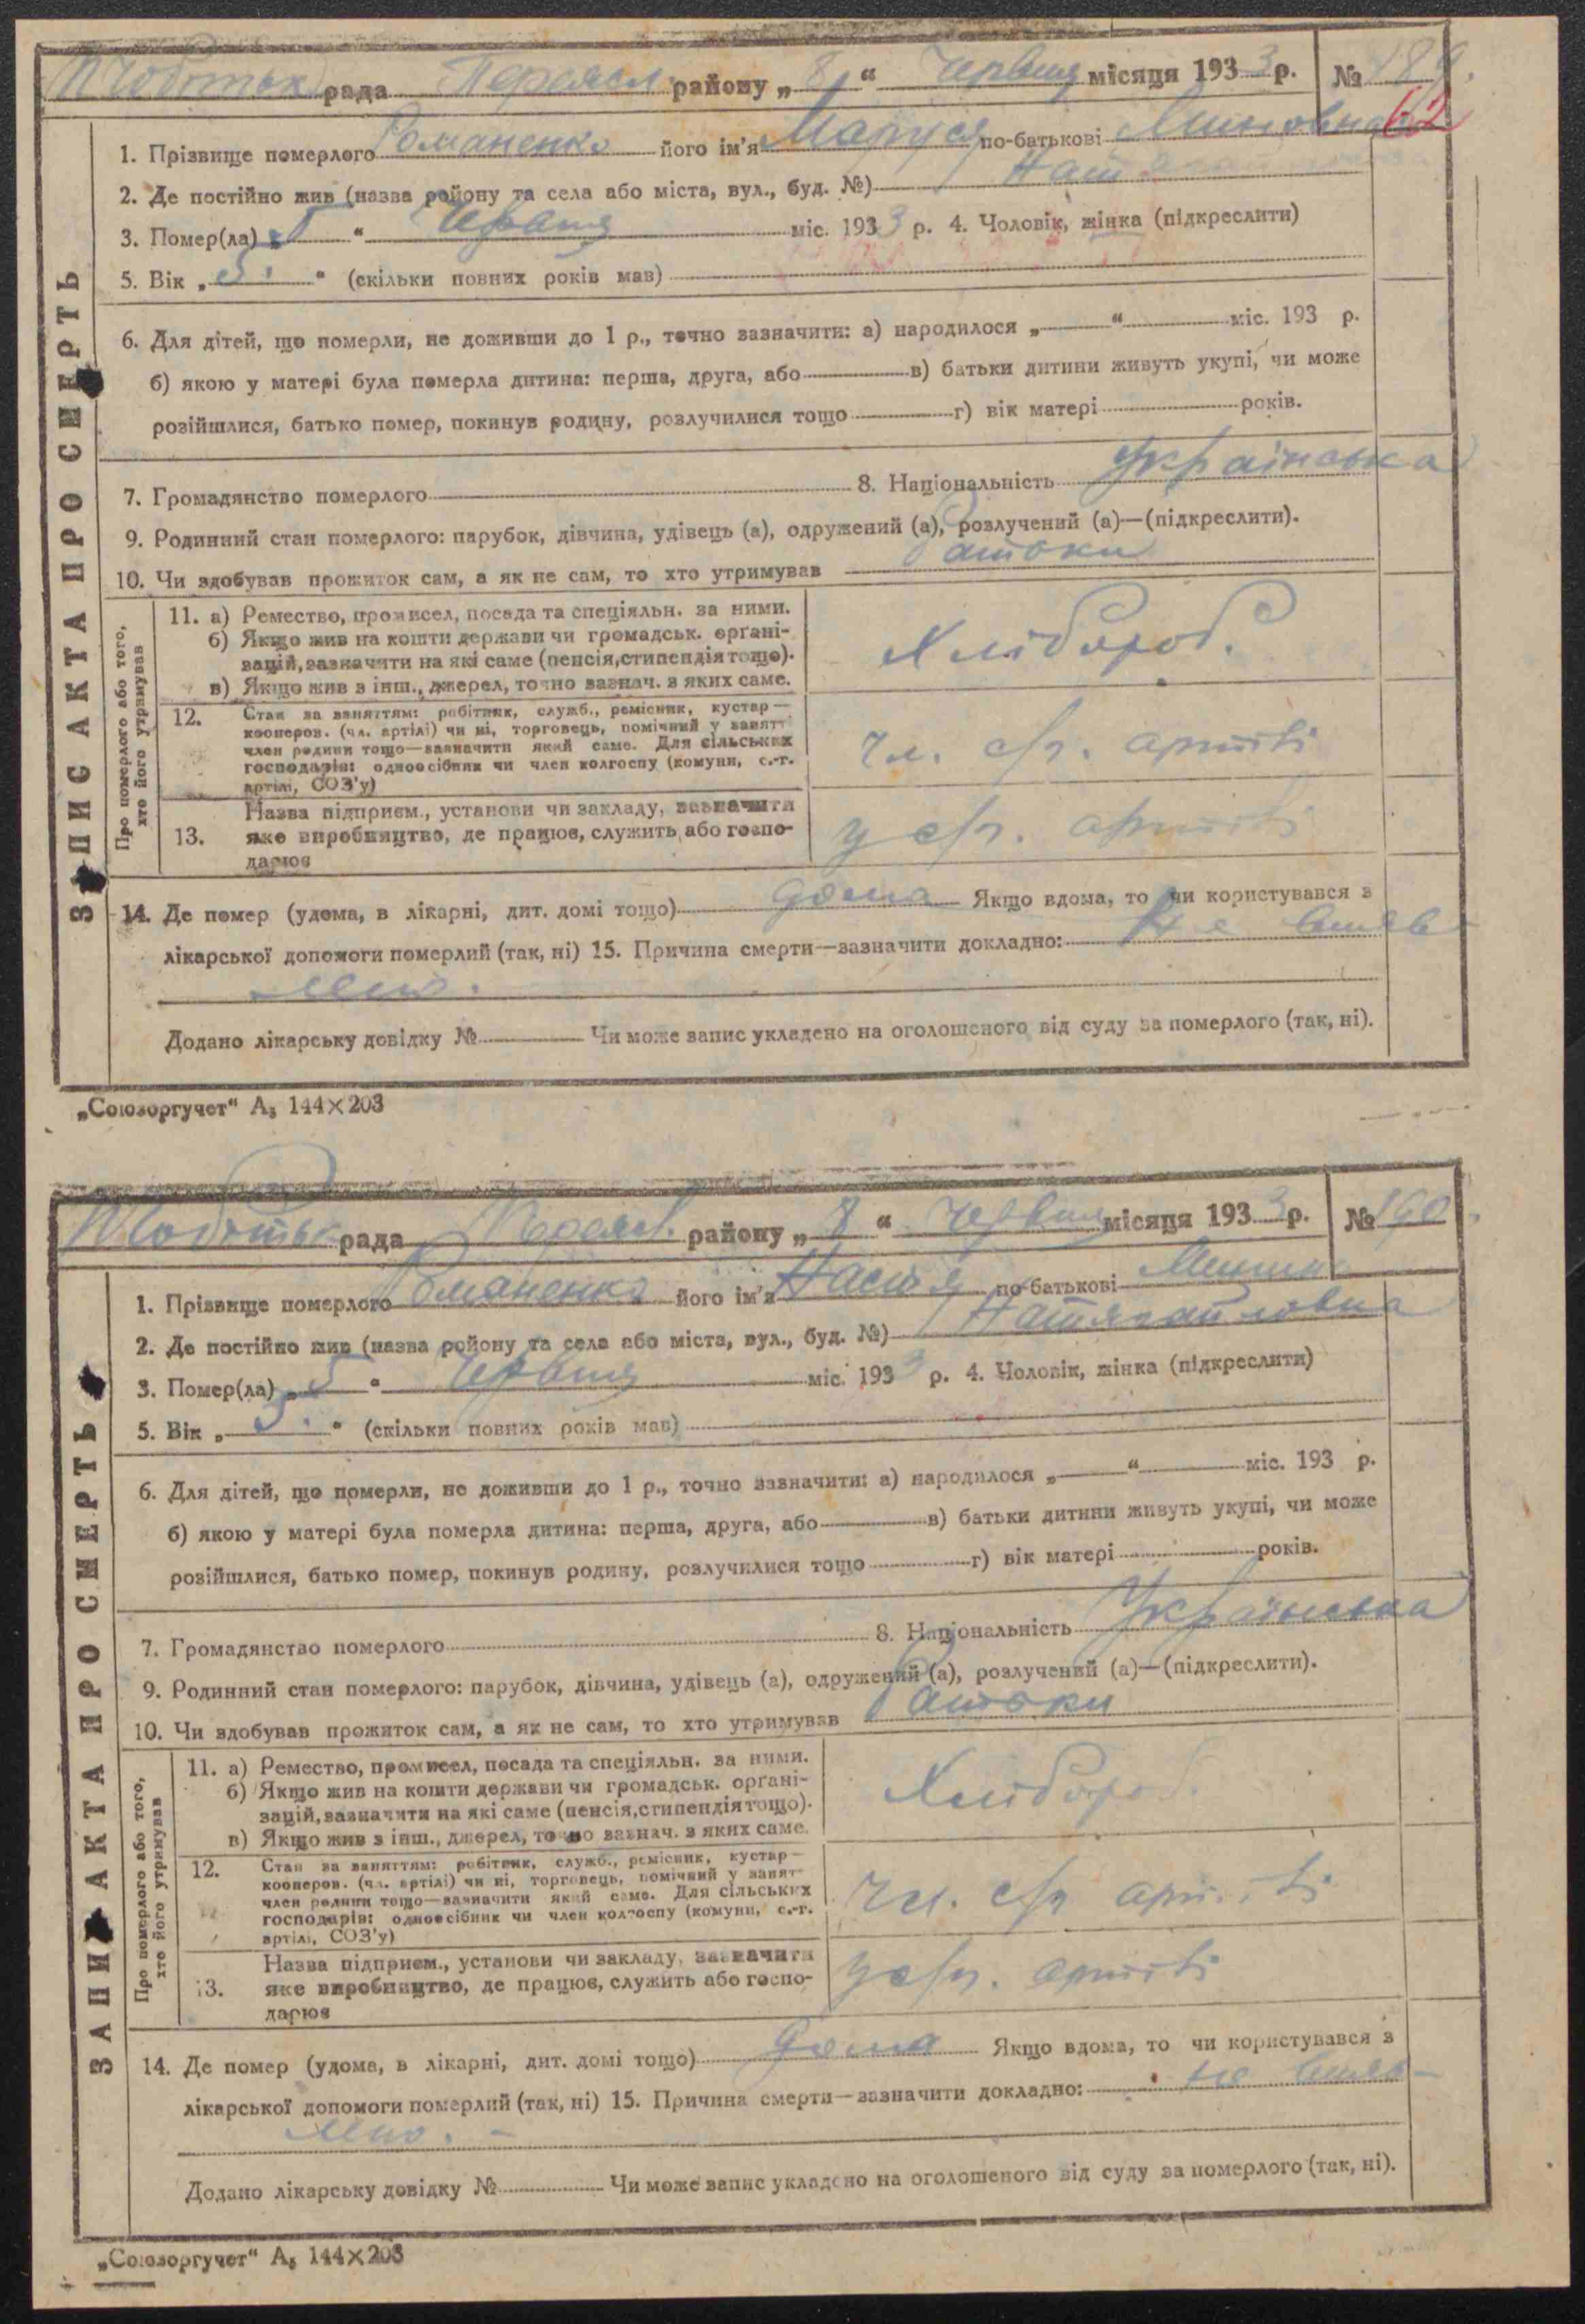 рада Переясл. району „ 8 “ червня місяця 1933 р. № 189.
62
ЗАПИС АКТА ПРО СМЕРТЬ
1. Прізвище померлого Романенко його ім'я Маруся по-батькові
2. Де постійно жив (назва району та села або міста, вул., буд. №)
3. Помер(ла) „ 5 “ червня міс. 1933 р. 4. Чоловік, жінка (підкреслити)
5. Вік „ 5. “ (скільки повних років мав)
6. Для дітей, що померли, не доживши до 1 р., точно зазначити: а) народилося „ “ міс. 193 р.
б) якою у матері була померла дитина: перша, друга, або в) батьки дитини живуть укупі, чи може
розійшлися, батько помер, покинув родину, розлучилися тощо г) вік матері років.
7. Громадянство померлого 8. Національність Українська
9. Родинний стан померлого: парубок, дівчина, удівець (а), одружений (а), розлучений (а)—(підкреслити).
10. Чи здобував прожиток сам, а як не сам, то хто утримував батьки
Про померлого або того,
хто його утримував
11. а) Ремество, промисел, посада та спеціяльн. за ними.
б) Якщо жив на кошти держави чи громадськ. органі-
зацій, зазначити на які саме (пенсія, стипендія тощо).
в) Якщо жив з інш., джерел, точно зазнач. з яких саме.
Хлібороб.
12. Стан за заняттям: робітник, служб., ремісник, кустар—
кооперов. (чл. артілі) чи ні, торговець, помічний у занятт
член родини тощо—зазначити який саме. Для сільських
господарів: одноосібник чи член колгоспу (комуни, с.-г.
артілі, СОЗ'у)
чл. с/г. артілі
13. Назва підприєм., установи чи закладу, зазначити
яке виробництво, де працює, служить або госпо-
дарює
у с/г. артілі
14. Де помер (удома, в лікарні, дит. домі тощо) дома Якщо вдома, то чи користувався з
лікарської допомоги померлий (так, ні) 15. Причина смерти—зазначити докладно: Не вияв-
лено.
Додано лікарську довідку № Чи може запис укладено на оголошеного від суду за померлого (так, ні).
„Союзоргучет“ А₅ 144×203
рада Переясл. району „ 8 “ червня місяця 1933 р. № 190.
ЗАПИС АКТА ПРО СМЕРТЬ
1. Прізвище померлого Романенко його ім'я Настя по-батькові
2. Де постійно жив (назва району та села або міста, вул., буд. №)
3. Помер(ла) „ 5 “ червня міс. 1933 р. 4. Чоловік, жінка (підкреслити)
5. Вік „ 3. “ (скільки повних років мав)
6. Для дітей, що померли, не доживши до 1 р., точно зазначити: а) народилося „ “ міс. 193 р.
б) якою у матері була померла дитина: перша, друга, або в) батьки дитини живуть укупі, чи може
розійшлися, батько помер, покинув родину, розлучилися тощо г) вік матері років.
7. Громадянство померлого 8. Національність Українська
9. Родинний стан померлого: парубок, дівчина, удівець (а), одружений (а), розлучений (а)—(підкреслити).
10. Чи здобував прожиток сам, а як не сам, то хто утримував батьки
Про померлого або того,
хто його утримував
11. а) Ремество, промисел, посада та спеціяльн. за ними.
б) Якщо жив на кошти держави чи громадськ. органі-
зацій, зазначити на які саме (пенсія, стипендія тощо).
в) Якщо жив з інш., джерел, точно зазнач. з яких саме.
Хлібороб.
12. Стан за заняттям: робітник, служб., ремісник, кустар—
кооперов. (чл. артілі) чи ні, торговець, помічний у занят
член родини тощо—зазначити який саме. Для сільських
господарів: одноосібник чи член колгоспу (комуни, с.-г.
артілі, СОЗ'у)
чл. с/г артілі
13. Назва підприєм., установи чи закладу, зазначити
яке виробництво, де працює, служить або госпо-
дарює
у с/г. артілі
14. Де помер (удома, в лікарні, дит. домі тощо) дома Якщо вдома, то чи користувався з
лікарської допомоги померлий (так, ні) 15. Причина смерти—зазначити докладно: не вияв-
лено.
Додано лікарську довідку № Чи може запис укладено на оголошеного від суду за померлого (так, ні).
„Союзоргучет“ А₅ 144×203